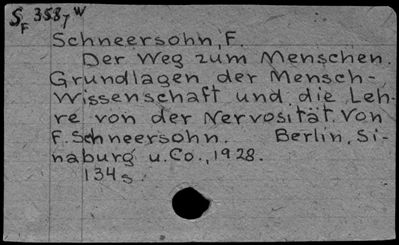 S_F 3587 W
Schneersohn, F.
Der Weg zum Menschen.
Grundlagen der Mensch-
Wissenschaft und die Leh-
re von der Nervosität von
F. Schneersohn. Berlin, Si-
naburg u. Co., 1928.
134 s.